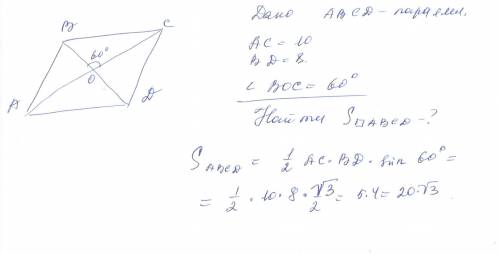 Дано ABCD - паралл.
AC = 10
BD = 8.
∠ BOC = 60°
Найти S▱ABCD - ?
B
C
60°
O
A
D
S_ABCD = 1/2 AC · BD · sin 60° =
= 1/2 · 10 · 8 · √3/2 = 5·4 = 20·√3